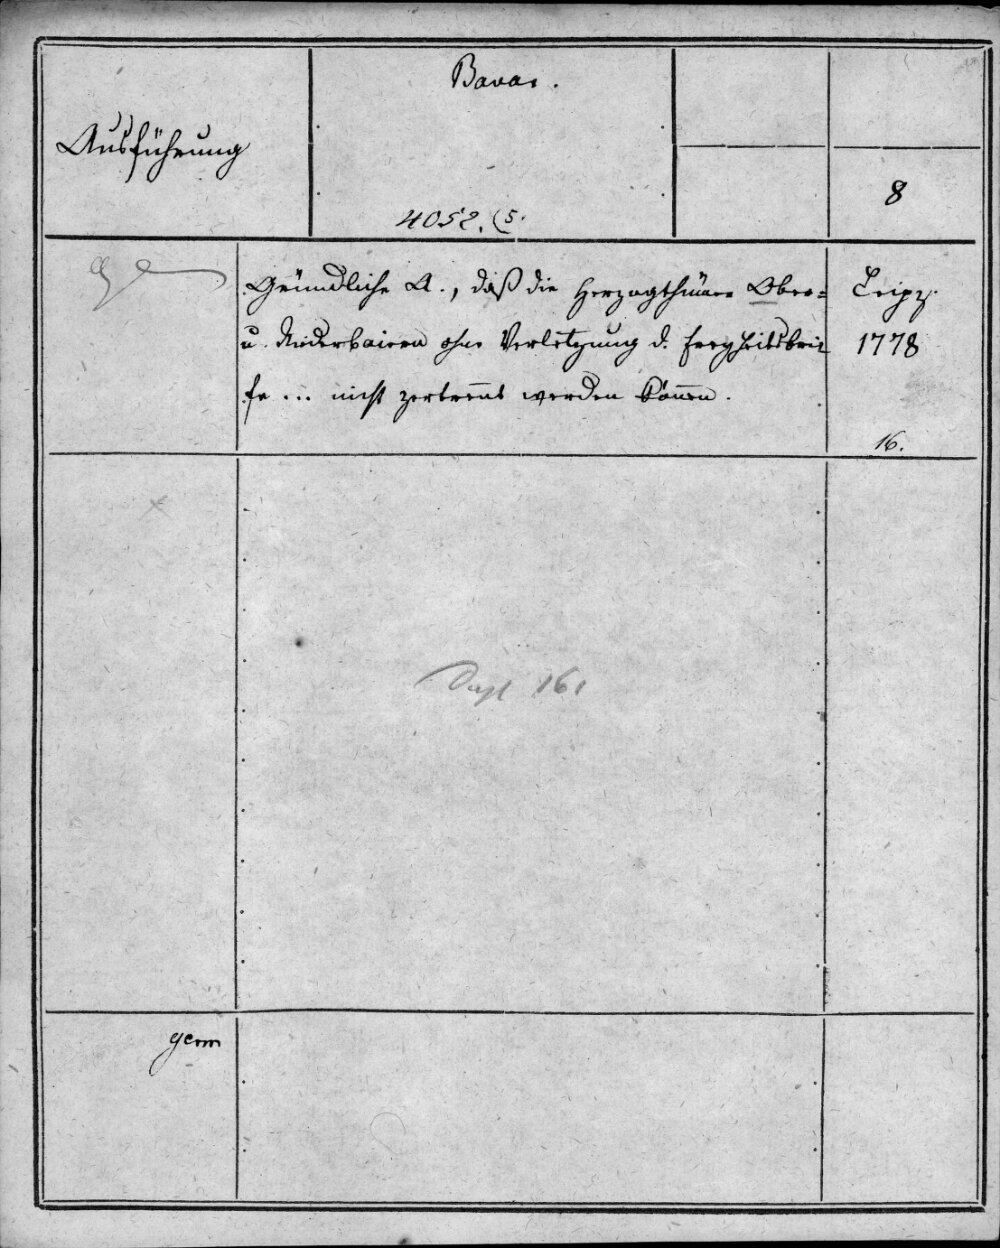 Bavar.
Ausführung
8
4052. (5.
Gründliche A., daß die Herzogthümer Ober=
u. Niederbaiern ohne Verletzung d. Freyheitsbrie
fe ... nicht zertrennt werden können.
Leipz.
1778
16.
161
germ